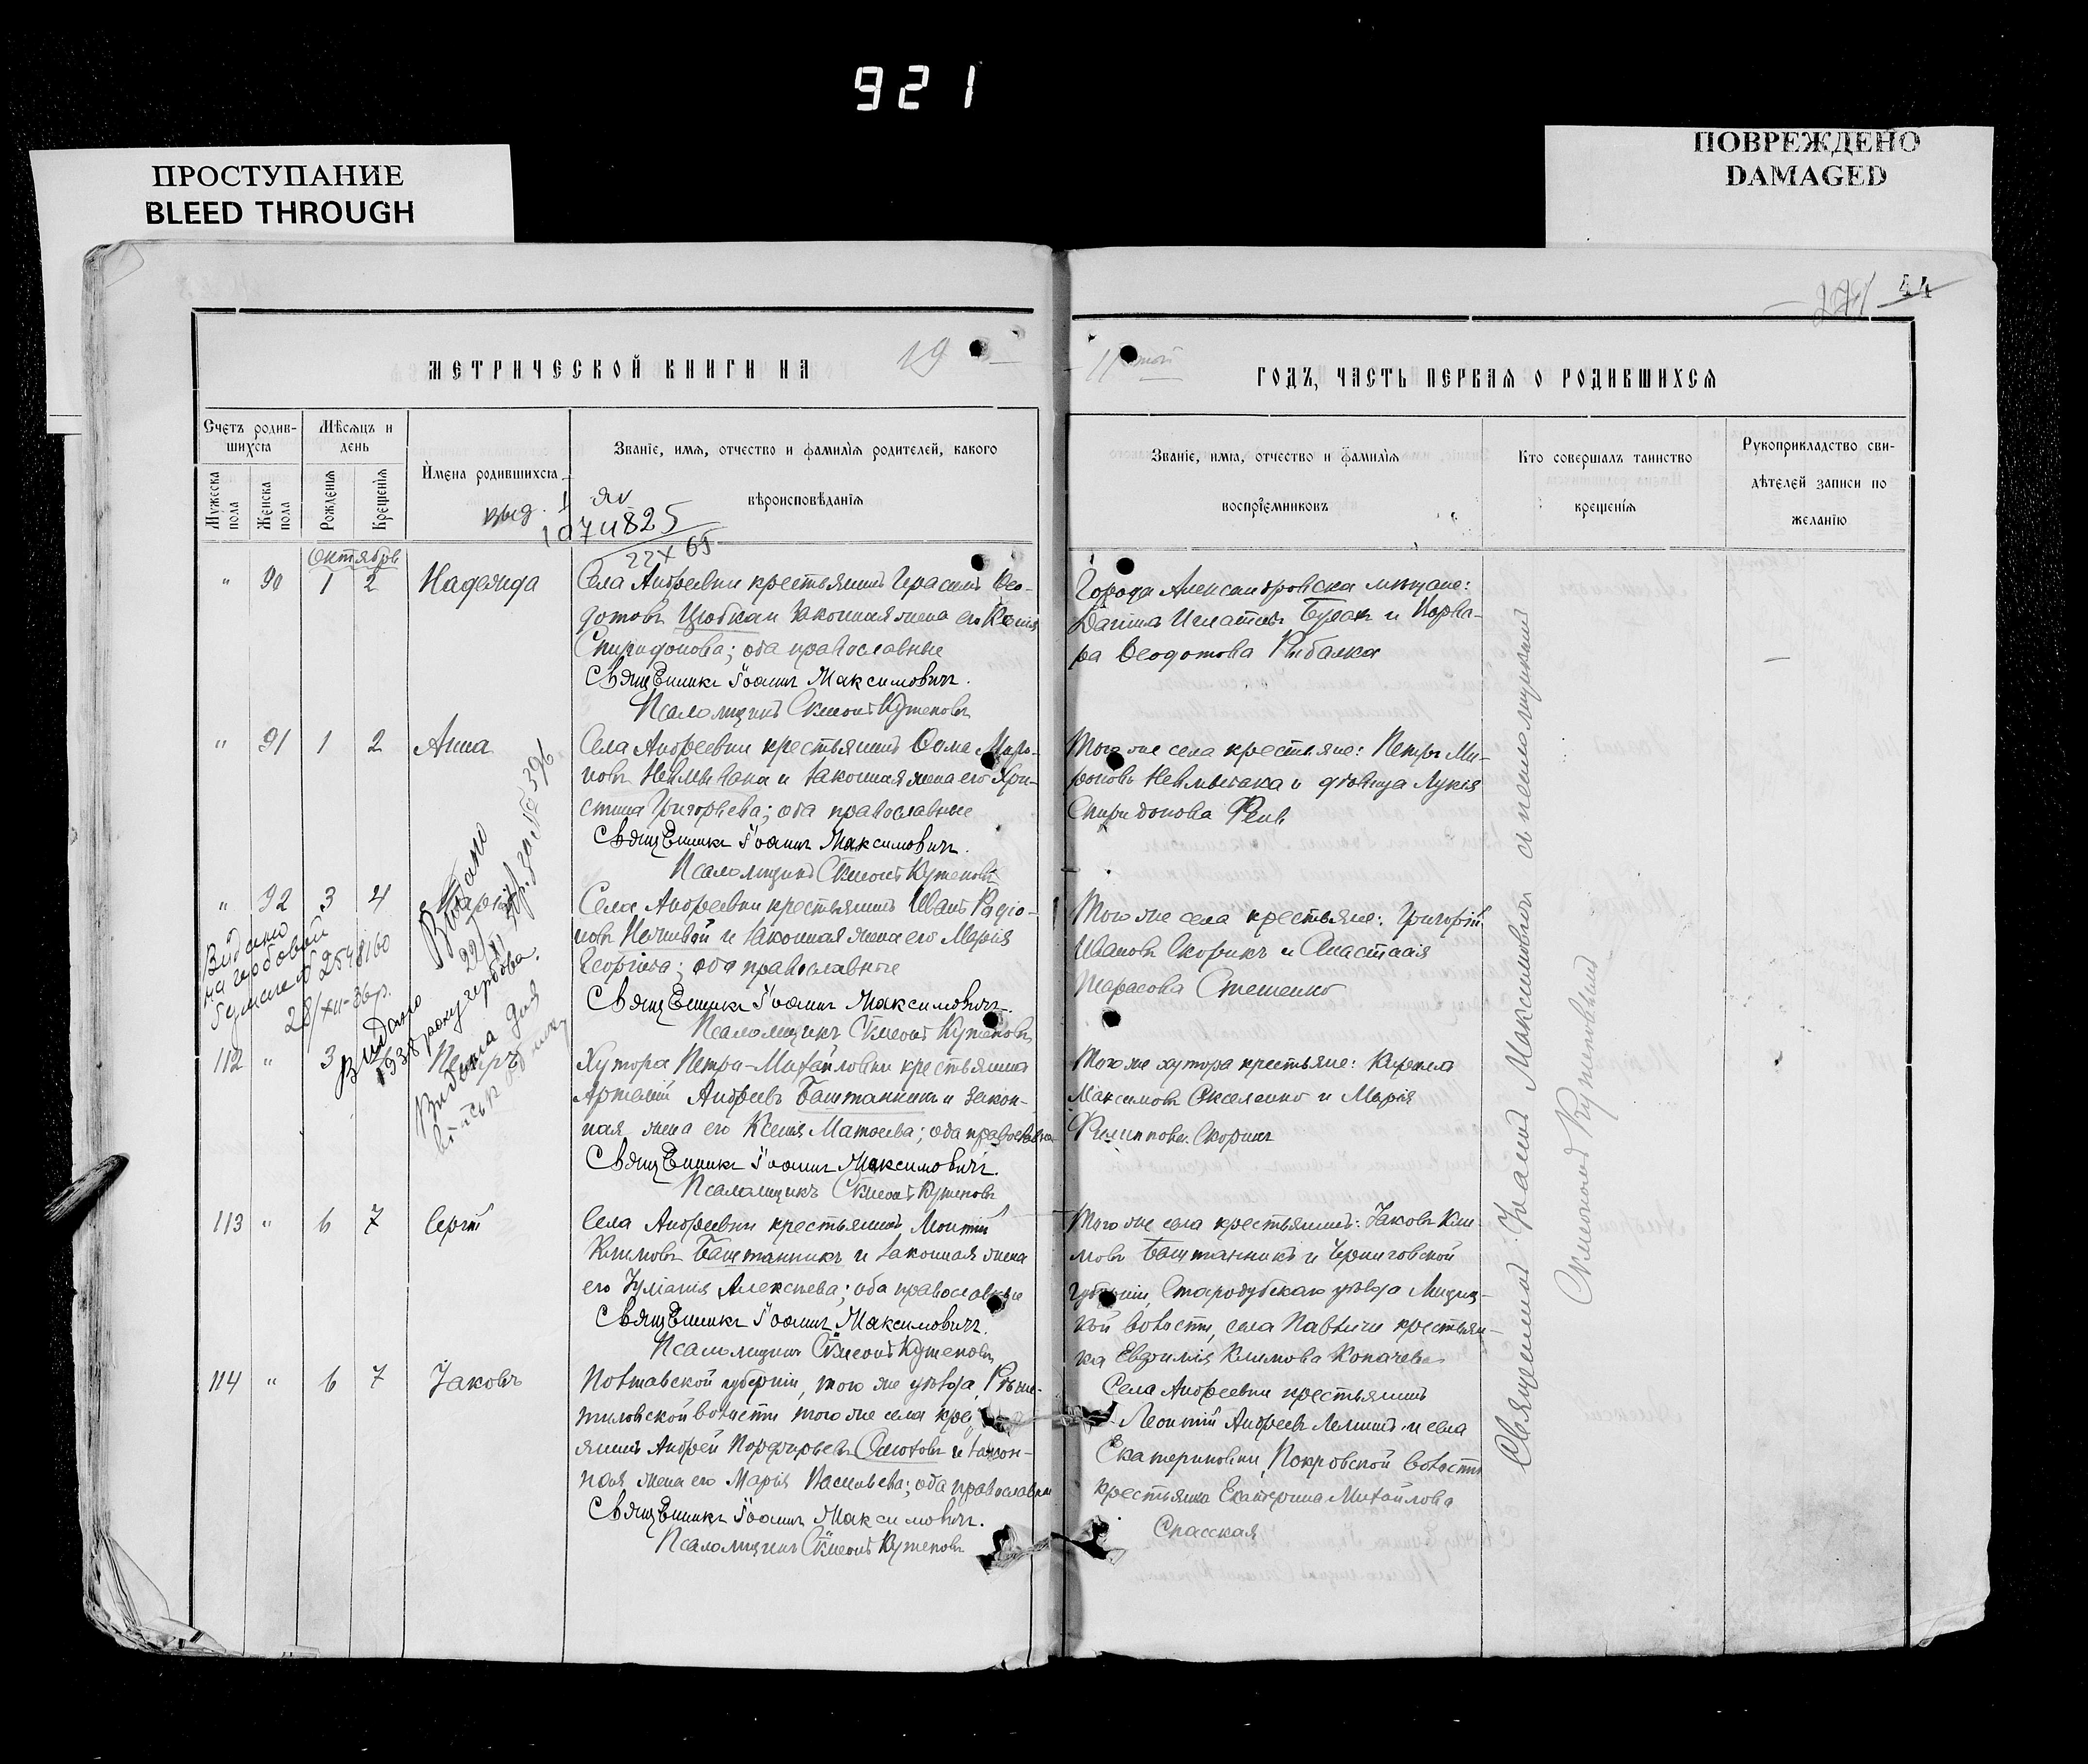 921
ПРОСТУПАНИЕ
BLEED THROUGH
ПОВРЕЖДЕНО
DAMAGED
44
МЕТРИЧЕСКОЙ КНИГИ НА 19
11 ГОДЪ, ЧАСТЬ ПЕРВАЯ О РОДИВШИХСЯ
Счетъ родив-
шихся
Мужеска пола
Женска пола
Мѣсяцъ и
день
Рожденія
Крещенія
Имена родившихся
Званіе, имя, отчество и фамилія родителей, какого
вѣроисповѣданія
Званіе, имя, отчество и фамилія
воспріемниковъ
Кто совершалъ таинство
крещенія
Рукоприкладство сви-
дѣтелей записи по
желанію
выд. I
1074825
22 X 65
Октябрь
" 90 1 2 Надежда
Села Андреевки крестьянинъ Герасимъ Ѳео-
дотовъ Цюбка и законная жена его Ксенія
Спиридонова; оба православные
Священникъ Іоаннъ Максимовичъ.
Псаломщикъ Симеонъ Кутеповъ
Города Александровска мѣщане:
Даніилъ Игнатіевъ Бузак и Варва-
ра Ѳеодотова Рыбалка
" 91 1 2 Анна
Села Андреевки крестьянинъ Ѳома Миро-
новъ Неплывака и законная жена его Хри-
стина Григорьева; оба православные
Священникъ Іоаннъ Максимовичъ.
Псаломщикъ Симеонъ Кутеповъ
Того же села крестьяне: Петръ Ми-
роновъ Неплывака и дѣвица Лукія
Спиридонова
" 92 3 4 Марія
Села Андреевки крестьянинъ Иванъ Родіо-
новъ и законная жена его Марія
Георгіева; оба православные
Священникъ Іоаннъ Максимовичъ.
Псаломщикъ Симеонъ Кутеповъ
Того же села крестьяне: Григорій
Ивановъ Скорикъ и Анастасія
Тарасова Стешенко
Видано
на гербовой
бумаге 2548160
28/XII-36р.
Видано
22/
за № 396
Видано
1938 року гербова.
Видана для
військ
112 " 3 Петръ
Хутора Петро-Михайловки крестьянинъ
Артемій Андреевъ Баштанникъ и закон-
ная жена его Ксенія Матѳеева; оба православные
Священникъ Іоаннъ Максимовичъ.
Псаломщикъ Симеонъ Кутеповъ
Того же хутора крестьяне: Кирилла
Максимовъ и Марія
Филиппова Скорикъ
113 " 6 7 Сергій
Села Андреевки крестьянинъ Леонтій
Климовъ Баштанникъ и законная жена
его Іуліанія Алексѣева; оба православные
Священникъ Іоаннъ Максимовичъ.
Псаломщикъ Симеонъ Кутеповъ
Того же села крестьянинъ: Іаковъ Кли-
мовъ Баштанникъ и Черниговской
губерніи, Стародубскаго уѣзда
кой волости, села крестьян-
ка Евфимія Климова Копачева
114 " 6 7 Іаковъ
Полтавской губерніи, того же уѣзда, Рѣше-
тиловской волости того же села крест-
янинъ Андрей Порфирьевъ и закон-
ная жена его Марія Васильева; оба православные
Священникъ Іоаннъ Максимовичъ.
Псаломщикъ Симеонъ Кутеповъ
Села Андреевки крестьянинъ
Леонтій Андреевъ и села
Екатериновки, Покровской волости
крестьянка Екатерина Михайлова
Спасская
Священникъ Іоаннъ Максимовичъ съ псаломщикомъ
Симеономъ Кутеповымъ